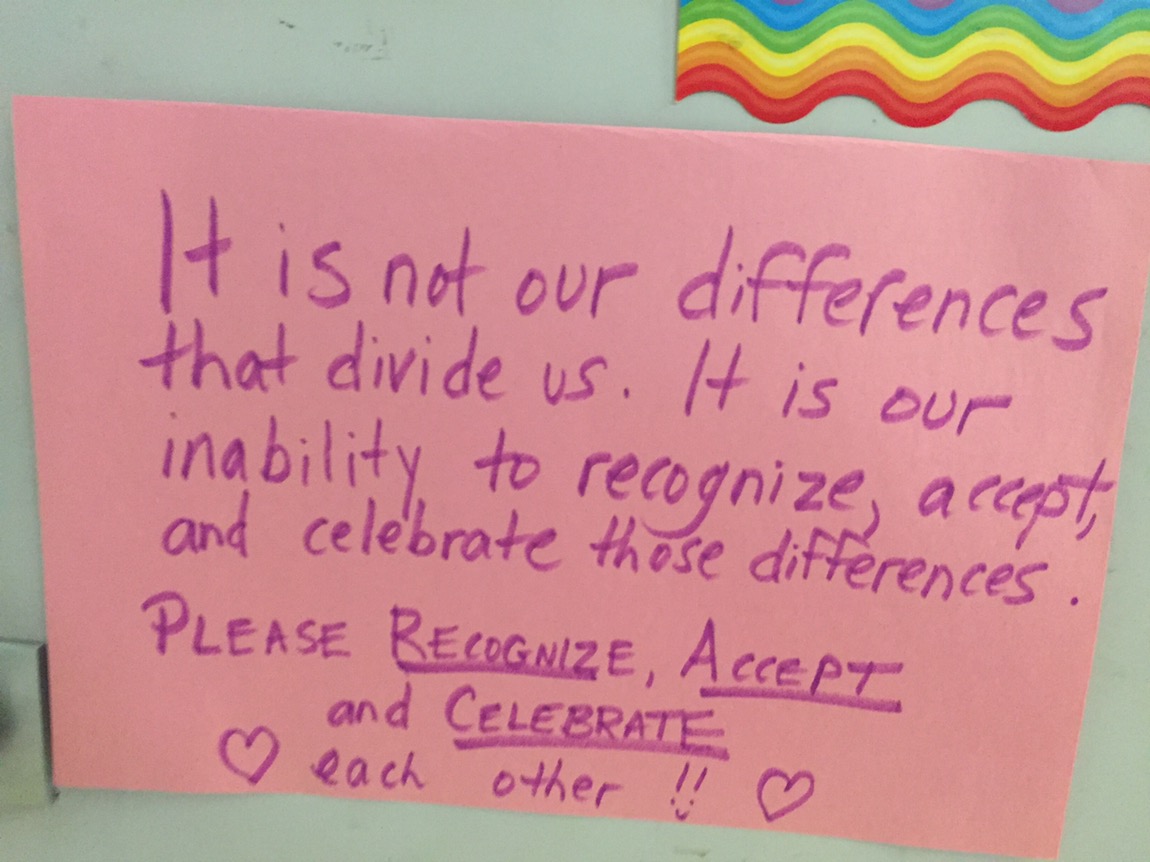 It is not our differences
that divide us. It is our
inability to recognize, accept,
and celebrate those differences.
PLEASE RECOGNIZE, ACCEPT
and CELEBRATE
♡ each other !! ♡